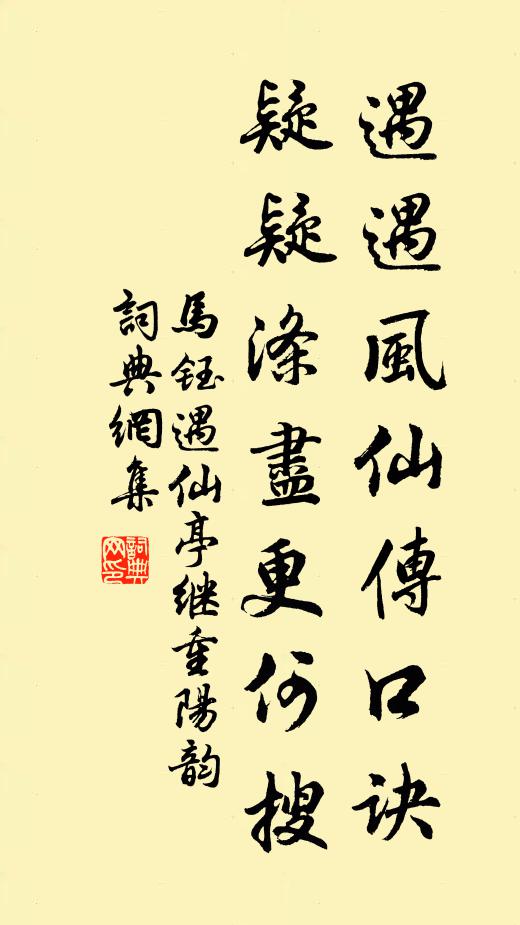 遇遇風仙傳口诀
疑疑滌盡更何搜
馬鈺遇仙亭继重陽韵
詞典網集
詞典网印